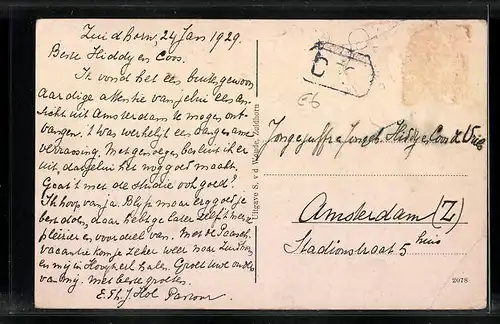 Zuidhorn, 24 Jan 1929.
Beste Hiddy en Coos.
Ik vond het een buitengewoon
aardige attentie van jelui een an-
sicht uit Amsterdam te mogen ont-
vangen. 't was werkelijk een aangename
verrassing. Met genoegen besluit ik er
uit, dat jelui het nog goed maakt.
Gaat 't met de studie ook goed?
Ik hoop van ja. Blijf maar erg goed je
best doen, daar heb je later zelf 't meeste
plezier en voordeel van. Met de Paasch-
vacantie kom je zeker weer naar Zuidhorn
en mij in Hooghert halen. Groet uwe ouders
van mij. Met beste groeten
E. Th. J. Hol
Uitgave S. v. d. Zuidhorn
C6
Jongejuffr. Hiddy Coos de
Amsterdam (Z)
Stadionstraat 5 huis
2078